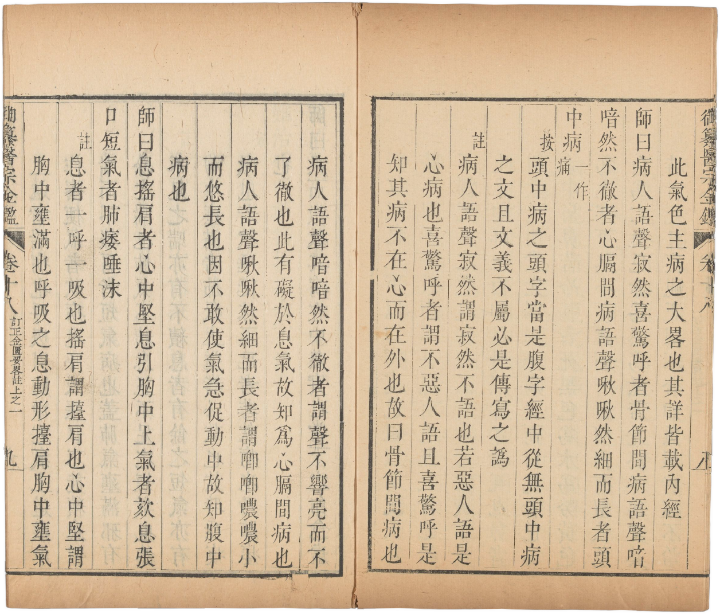 此氣色主病之大畧也其詳皆載內經
師曰病人語聲寂然喜驚呼者骨節間病語聲喑
喑然不徹者心膈間病語聲啾啾然細而長者頭
中病一作痛
按頭中病之頭字當是腹字經中從無頭中病
之文且文義不屬必是傳寫之譌
註病人語聲寂然謂寂然不語也若惡人語是
心病也喜驚呼者謂不惡人語且喜驚呼是
知其病不在心而在外也故曰骨節間病也
御纂醫宗金鑑 卷十八 訂正金匱要畧註上之一 九
病人語聲喑喑然不徹者謂聲不響亮而不
了徹也此有礙於息氣故知爲心膈間病也
病人語聲啾啾然細而長者謂唧唧噥噥小
而悠長也因不敢使氣急促動中故知腹中
病也
師曰息搖肩者心中堅息引胸中上氣者欬息張
口短氣者肺痿唾沫
註息者一呼一吸也搖肩謂擡肩也心中堅謂
胸中壅滿也呼吸之息動形擡肩胸中壅氣